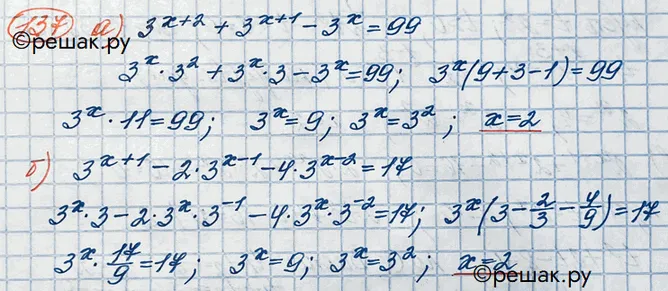 137 а) 3^{x+2} + 3^{x+1} - 3^x = 99
©решак.ру
3^x · 3^2 + 3^x · 3 - 3^x = 99; 3^x(9+3-1) = 99
3^x · 11 = 99; 3^x = 9; 3^x = 3^2; x = 2
б) 3^{x+1} - 2·3^{x-1} - 4·3^{x-2} = 17
3^x · 3 - 2·3^x · 3^{-1} - 4·3^x · 3^{-2} = 17; 3^x(3 - 2/3 - 4/9) = 17
3^x · 17/9 = 17; 3^x = 9; 3^x = 3^2; x = 2
©решак.ру